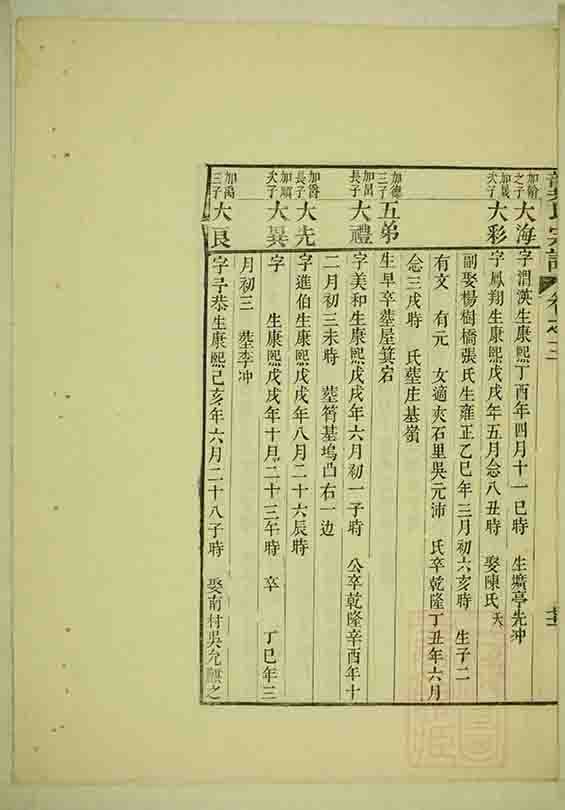 氏宗譜 卷之三
加翰之子 大海 字潤漢生康熙丁酉年四月十一巳時 生壙亭先冲
次子 大彩 字鳳翔生康熙戊戌年五月念八丑時 娶陳氏夭
副娶楊樹橋張氏生雍正乙巳年三月初六亥時 生子二
有文 有元 女適夾石里吳元沛 氏卒乾隆丁丑年六月
念三戌時 氏塟庄基嶺
加德三子 五弟 生早卒塟屋箕宕
長子 大禮 字美和生康熙戊戌年六月初一子時 公卒乾隆辛酉年十
二月初三未時 塟筲基塢凸右一边
加爵長子 大先 字進伯生康熙戊戌年八月二十六辰時
次子 大異 字 生康熙戊戌年十月二十三午時 卒 丁巳年三
月初三 塟李冲
三子 大良 字子恭生康熙己亥年六月二十八子時 娶南村吳允之